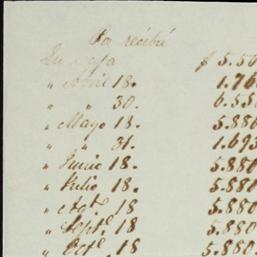 Por recibí
En caja $ 5.50
" Abril 18. 1.76
" " 30. 6.55
" Mayo 18. 5.880
" " 31. 1.693
" Junio 18. 5.880
" Julio 18. 5.880
" Agt.º 18 5.880
" Sept.e 18 5.880
" Oct.e 18 5.880